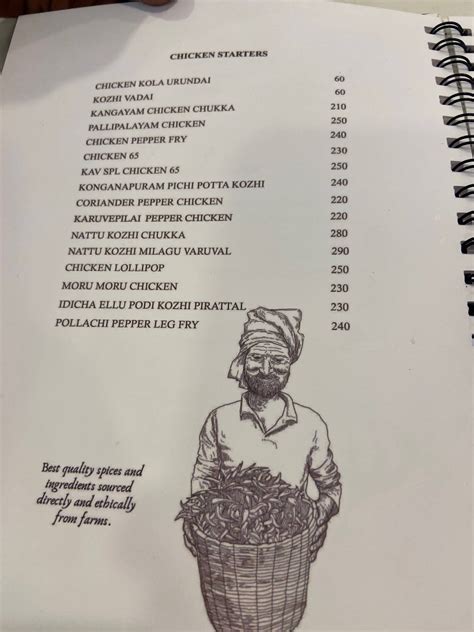 CHICKEN STARTERS
CHICKEN KOLA URUNDAI 60
KOZHI VADAI 60
KANGAYAM CHICKEN CHUKKA 210
PALLIPALAYAM CHICKEN 250
CHICKEN PEPPER FRY 240
CHICKEN 65 230
KAV SPL CHICKEN 65 250
KONGANAPURAM PICHI POTTA KOZHI 240
CORIANDER PEPPER CHICKEN 220
KARUVEPILAI PEPPER CHICKEN 220
NATTU KOZHI CHUKKA 280
NATTU KOZHI MILAGU VARUVAL 290
CHICKEN LOLLIPOP 250
MORU MORU CHICKEN 230
IDICHA ELLU PODI KOZHI PIRATTAL 230
POLLACHI PEPPER LEG FRY 240
Best quality spices and
ingredients sourced
directly and ethically
from farms.